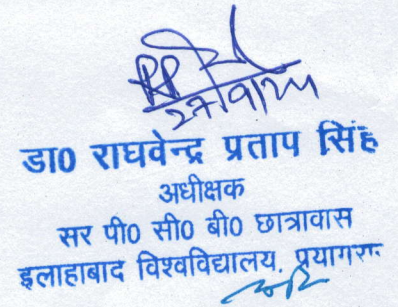 27/9/24
डा0 राघवेन्द्र प्रताप सिंह
अधीक्षक
सर पी0 सी0 बी0 छात्रावास
इलाहाबाद विश्वविद्यालय, प्रयागराज